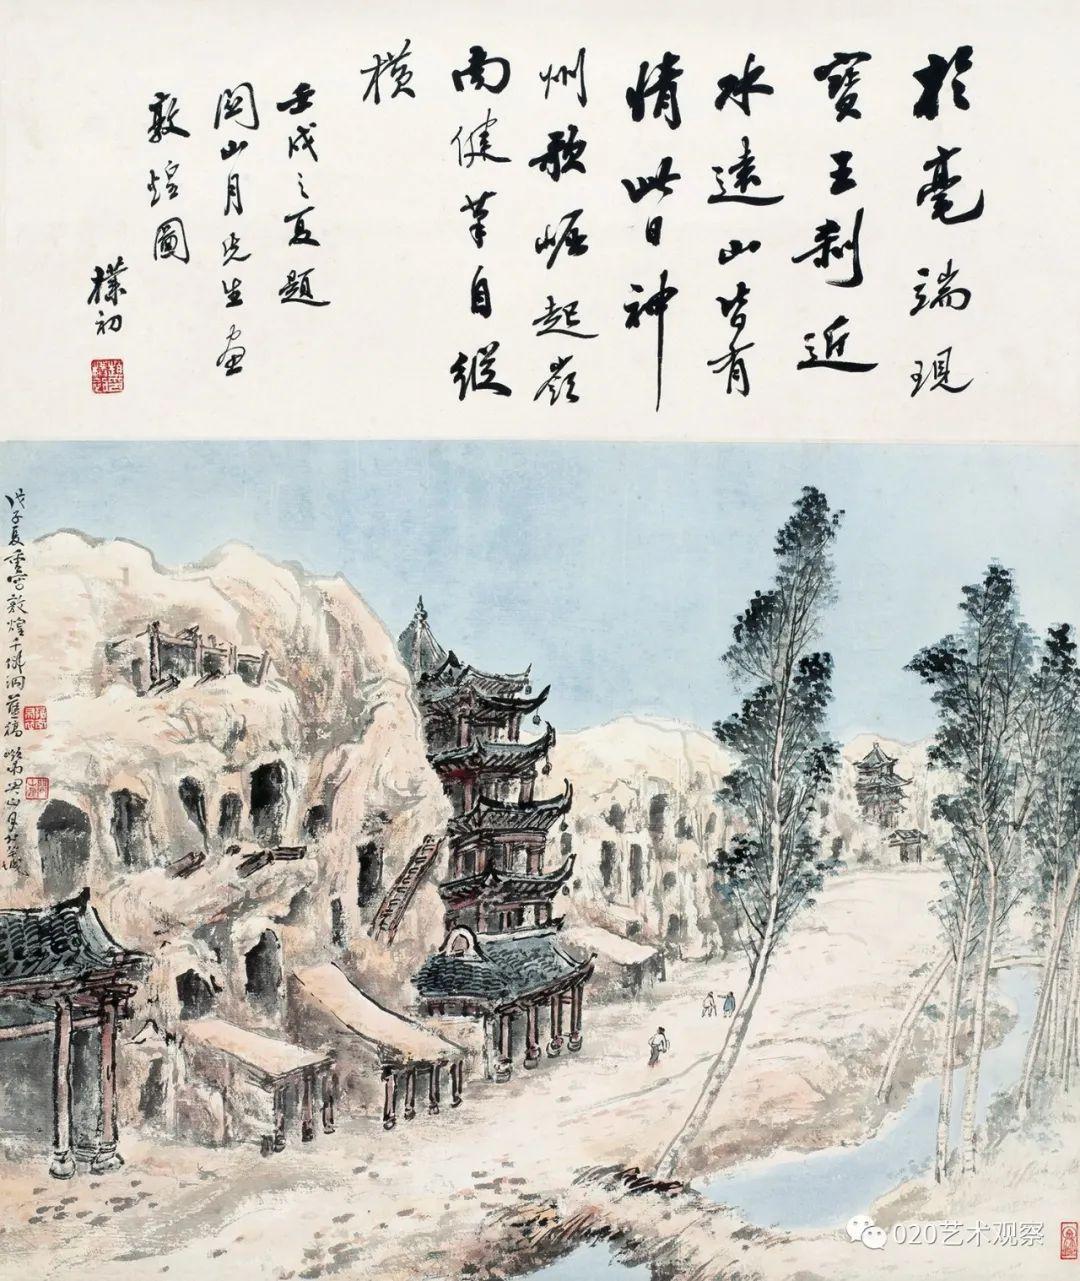 於毫端現
寶王刹近
水遠山皆有
情此日神
州歌崛起嶺
南健筆自縱
橫
壬戌之夏題
関山月先生畫
敦煌圖
樸初
戊子夏重寫敦煌千佛洞舊稿
020艺术观察